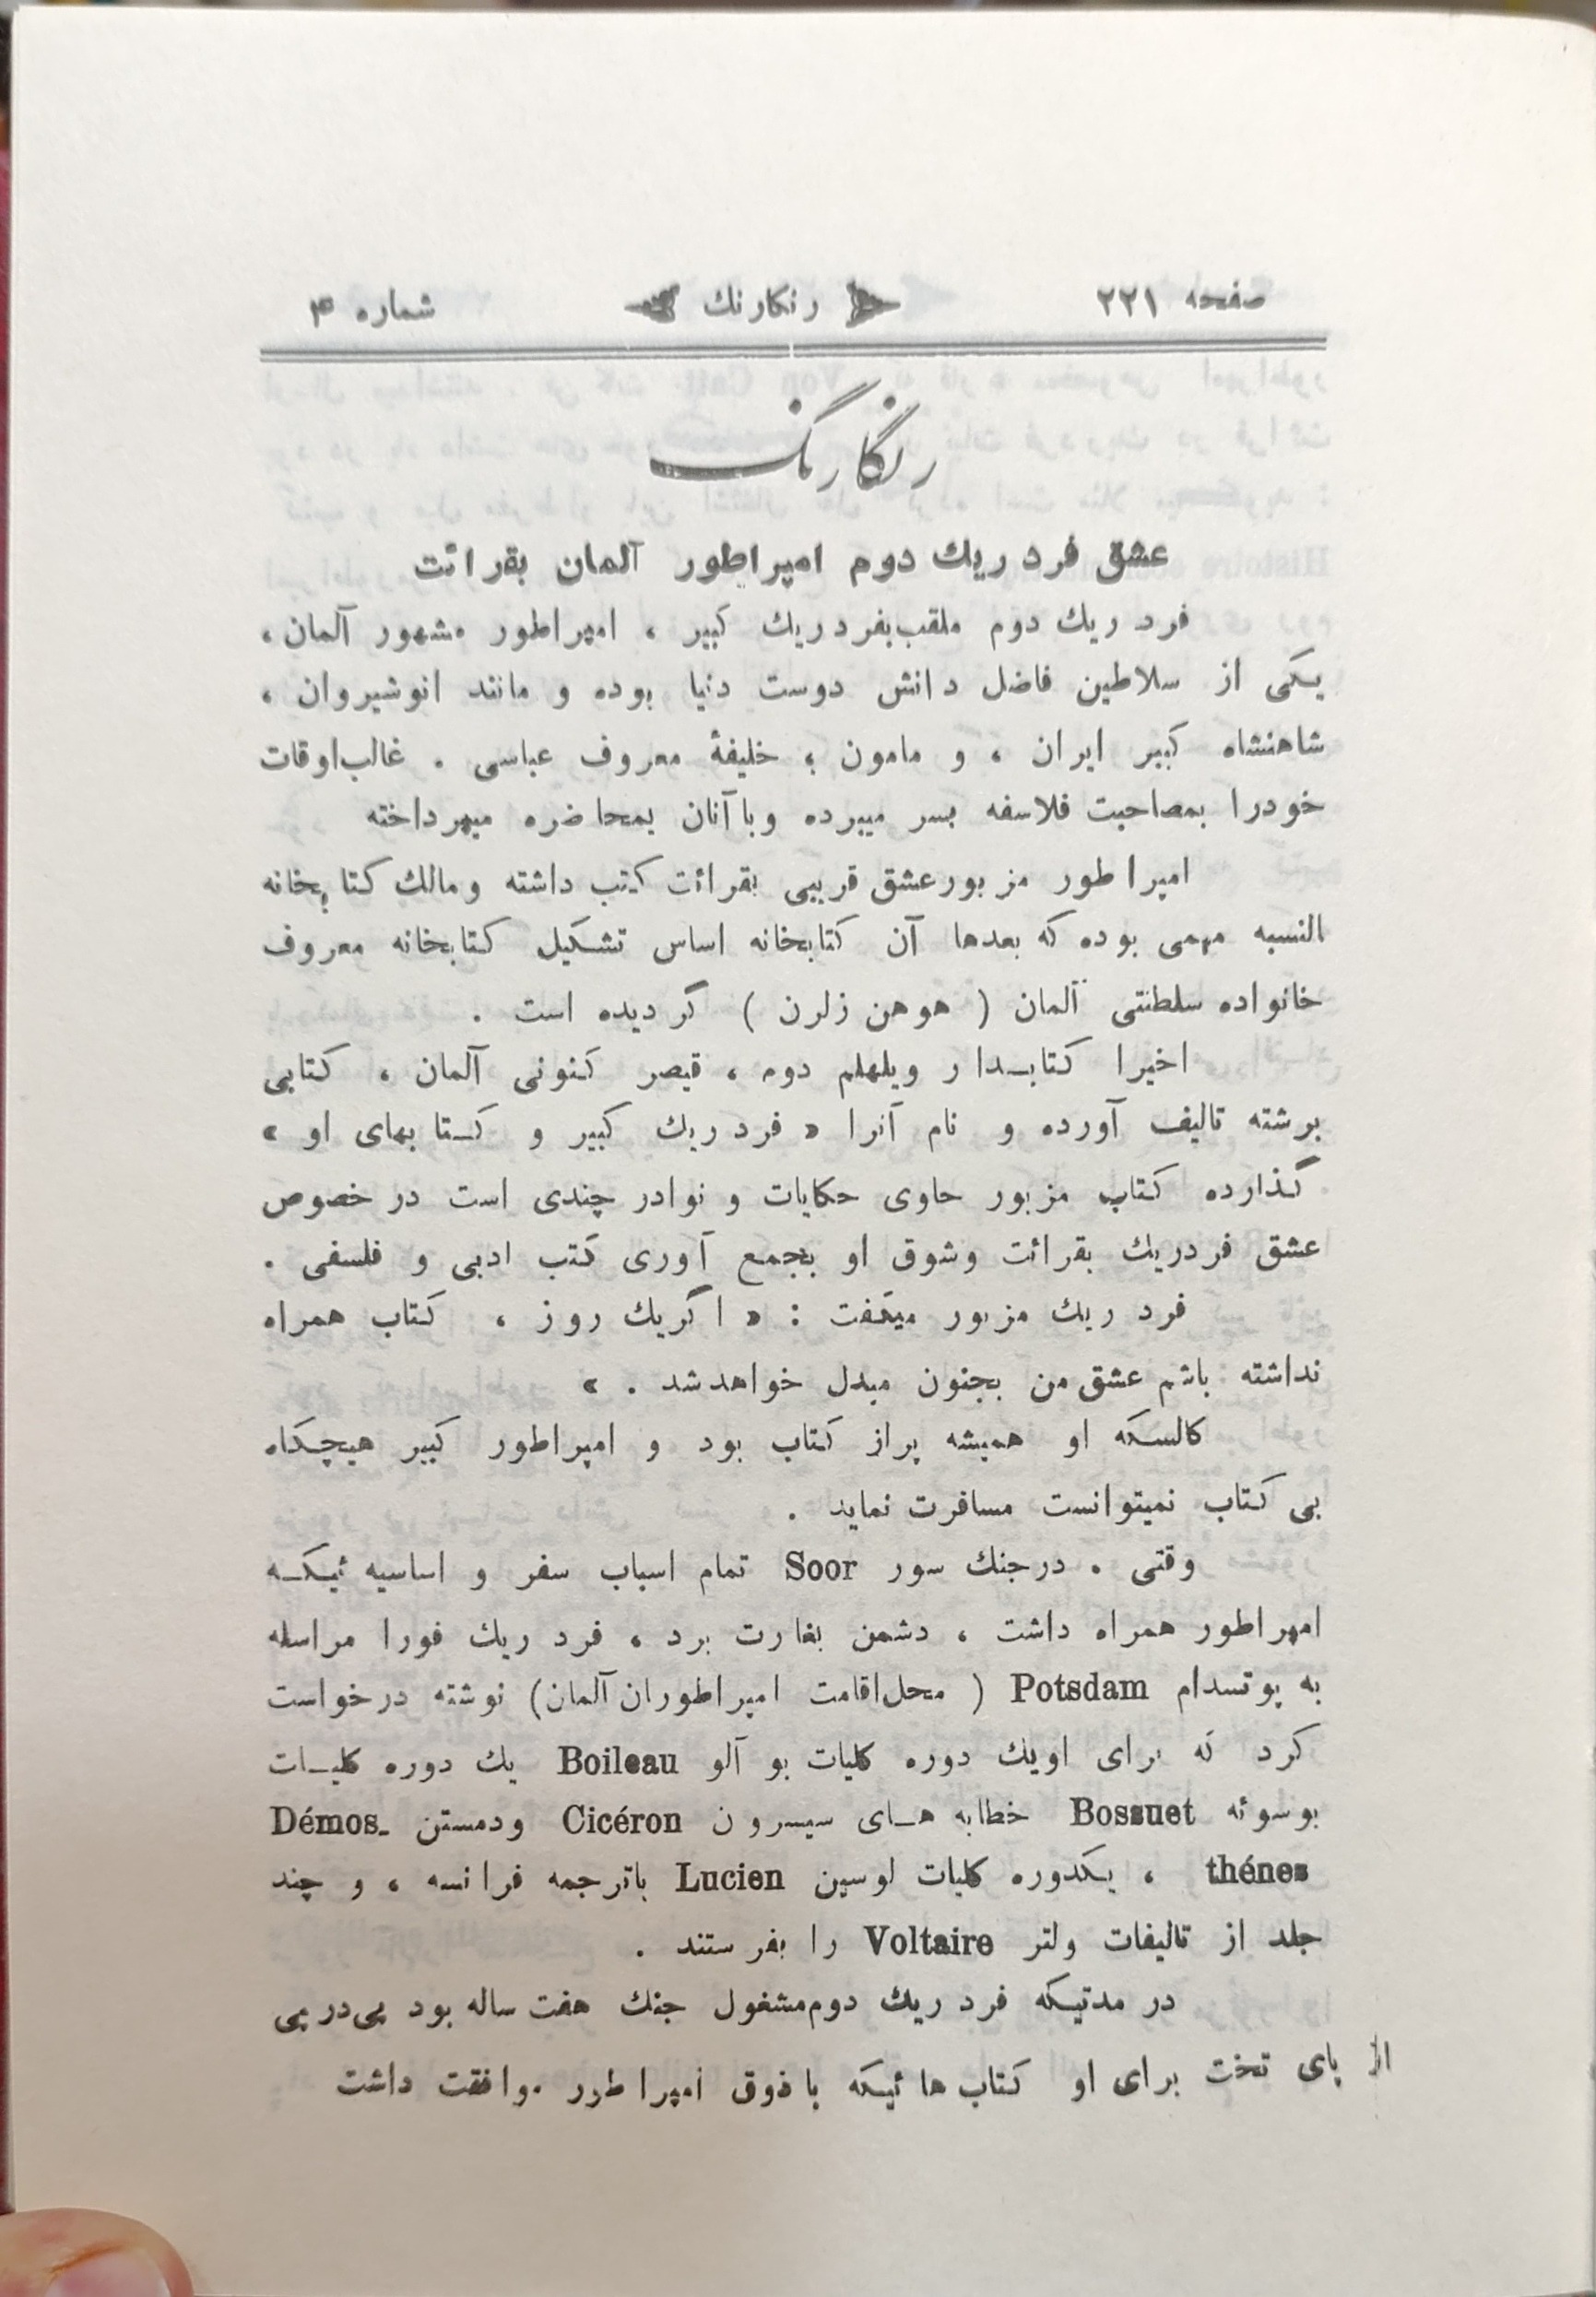 صفحه ۲۲۱ رنكارنك شماره ۴
رنگارنگ
عشق فردريك دوم امپراطور آلمان بقرائت
فردريك دوم ملقب بفردريك كبير ، امپراطور مشهور آلمان ،
يكى از سلاطين فاضل دانش دوست دنيا بوده و مانند انوشيروان ،
شاهنشاه كبير ايران ، و مامون ؛ خليفۀ معروف عباسى . غالب اوقات
خودرا بمصاحبت فلاسفه بسر ميبرده وباآنان بمحاضره ميپرداخته
امپراطور مزبور عشق قريبى بقرائت كتب داشته ومالك كتابخانه
النسبه مهمى بوده كه بعدها آن كتابخانه اساس تشكيل كتابخانه معروف
خانواده سلطنتى آلمان ( هوهن زلرن ) گرديده است .
اخيرا كتابدار ويلهلم دوم ، قيصر كنونى آلمان ، كتابى
برشته تاليف آورده و نام آنرا « فردريك كبير و كتابهاى او »
گذارده كتاب مزبور حاوى حكايات و نوادر چندى است در خصوص
عشق فردريك بقرائت وشوق او بجمع آورى كتب ادبى و فلسفى .
فردريك مزبور ميگفت : « اگريك روز ، كتاب همراه
نداشته باشم عشق من بجنون مبدل خواهدشد . »
كالسكه او هميشه پراز كتاب بود و امپراطور كبير هيچكاه
بى كتاب نميتوانست مسافرت نمايد .
وقتى . درجنك سور Soor تمام اسباب سفر و اساسيه ئيكه
امپراطور همراه داشت ، دشمن بغارت برد ، فردريك فورا مراسله
به پوتسدام Potsdam ( محل اقامت امپراطوران آلمان) نوشته درخواست
كرد كه براى اويك دوره كليات بو آلو Boileau يك دوره كليات
بوسوئه Bossuet خطابه هاى سيسرون Cicéron ودمستن Démos-
thénes ، يكدوره كليات لوسين Lucien باترجمه فرانسه ، و چند
جلد از تاليفات ولتر Voltaire را بفرستند .
در مدتيكه فردريك دوم مشغول جنك هفت ساله بود پى در پى
از پاى تخت براى او كتاب هائيكه با ذوق امپراطور موافقت داشت